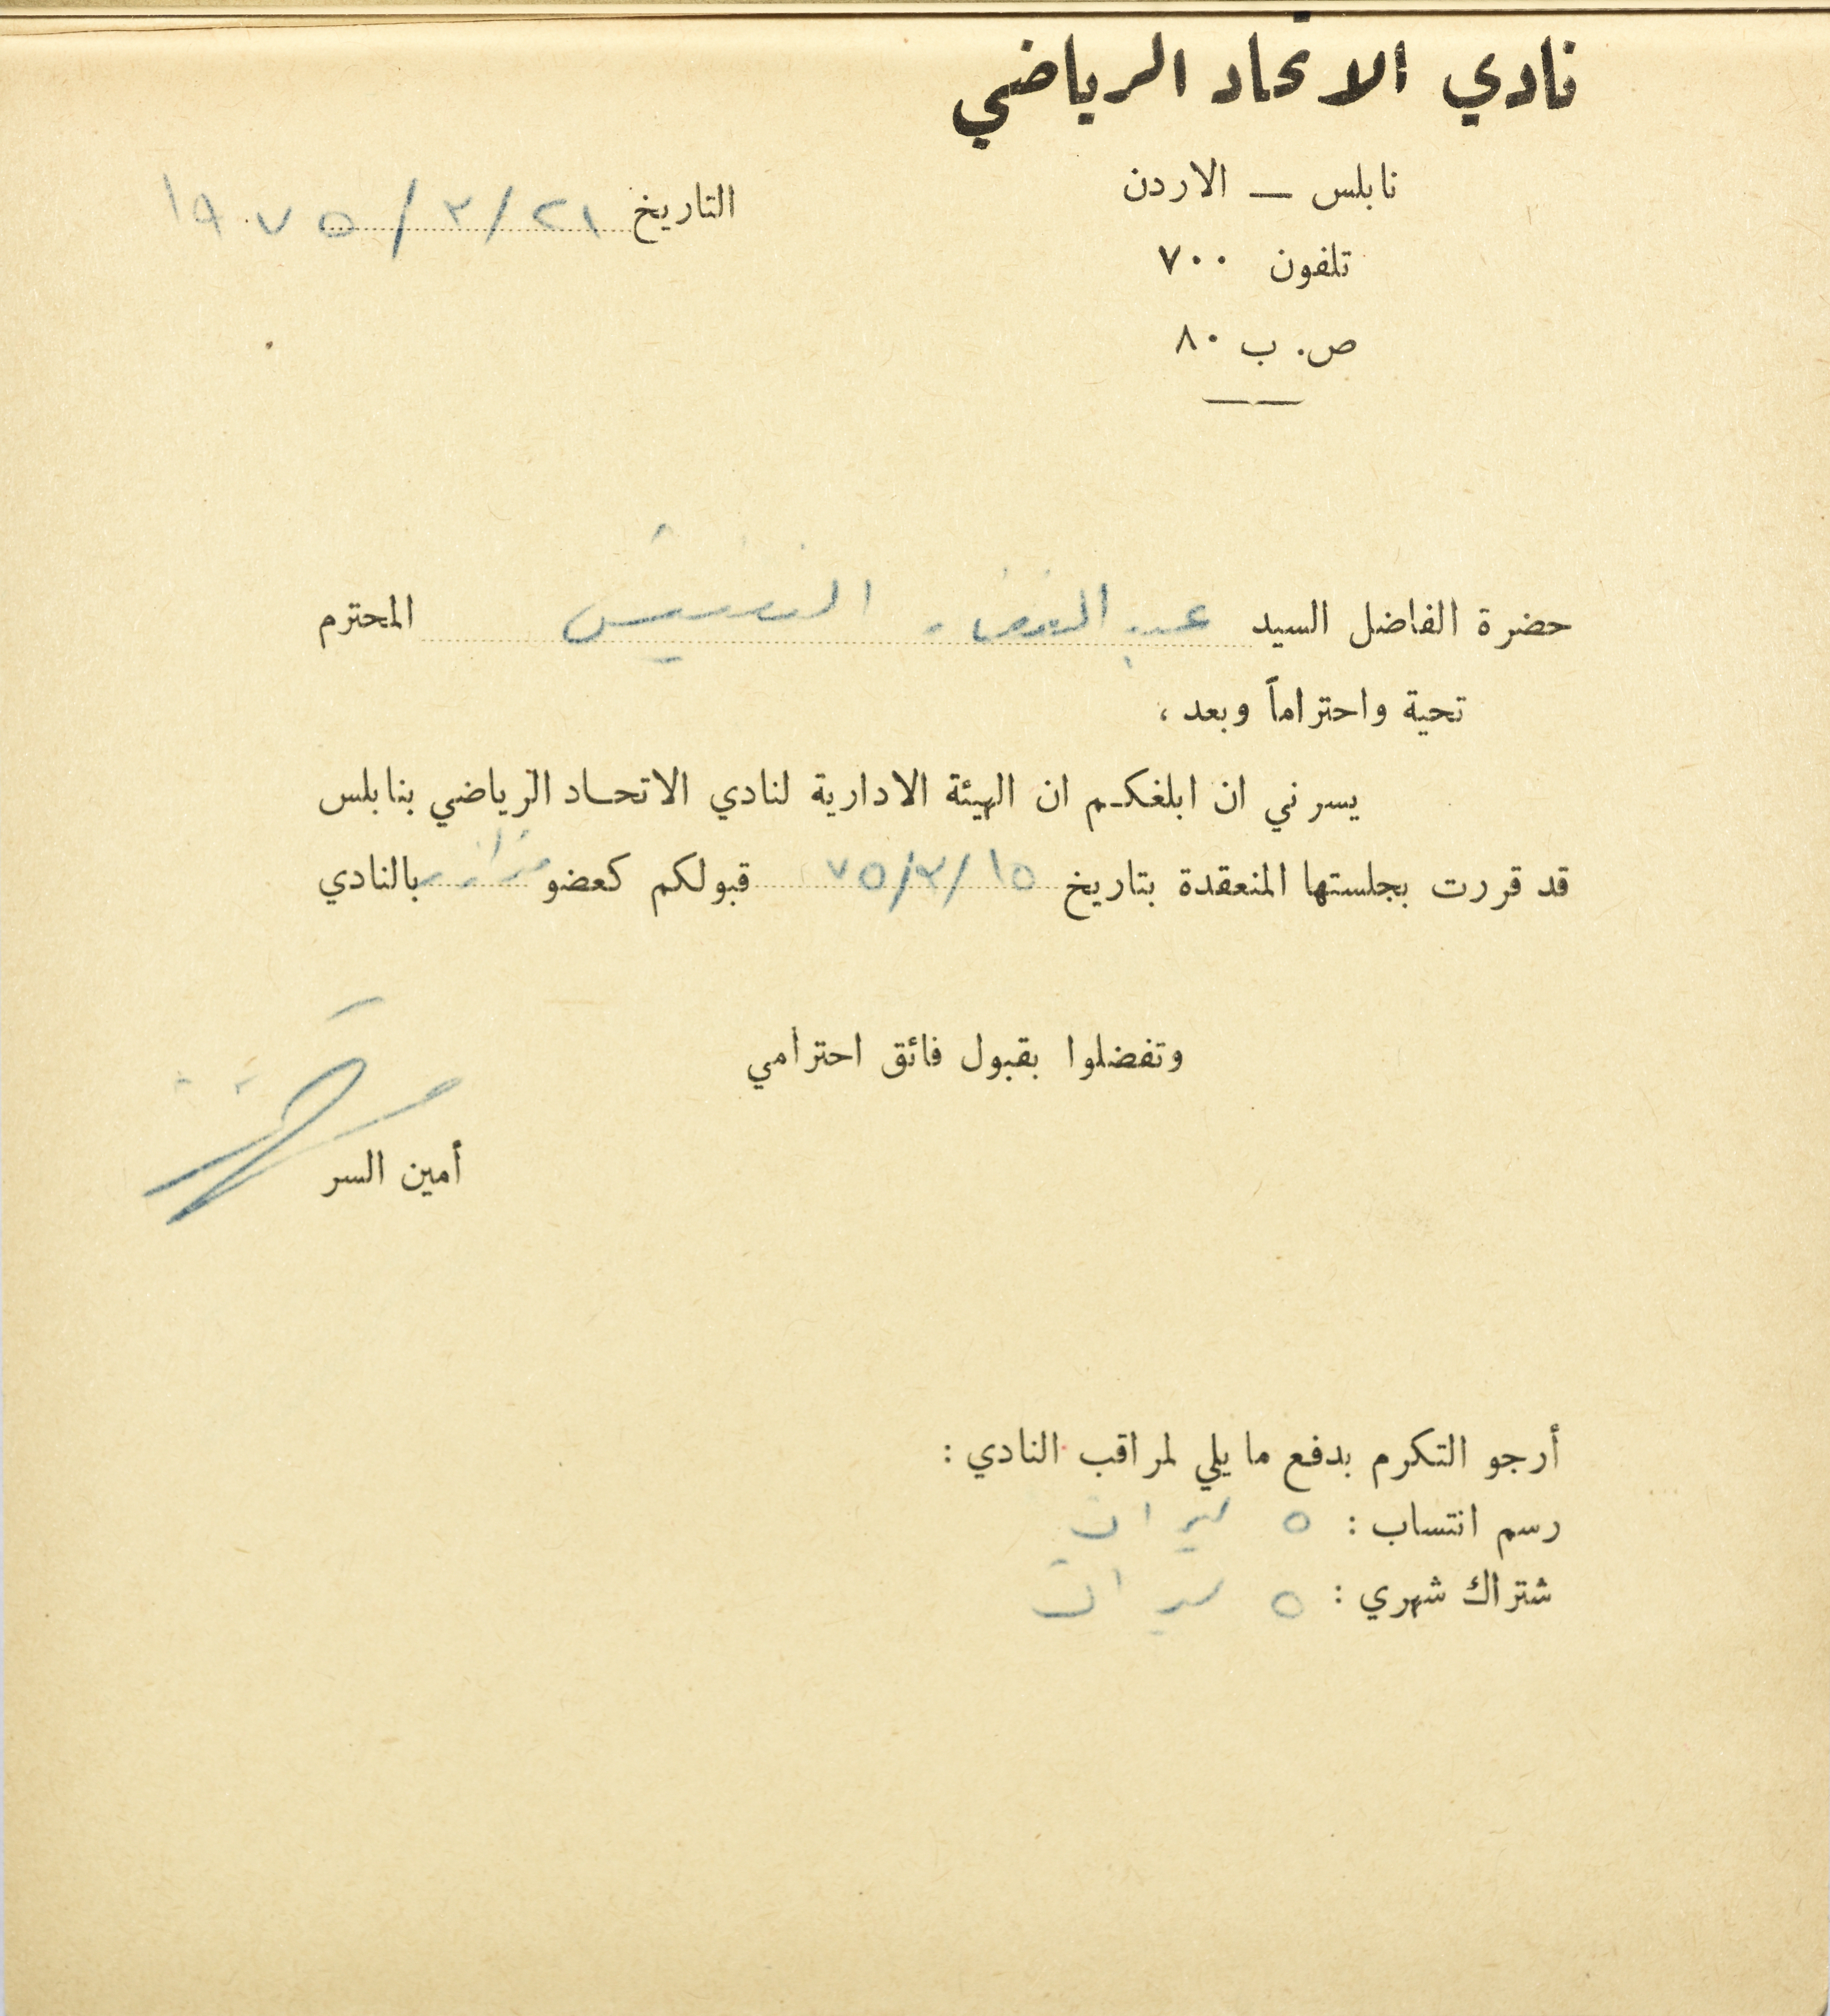 نادي الاتحاد الرياضي
نابلس — الاردن
التاريخ ٢١/٣/١٩٧٥
تلفون ٧٠٠
ص. ب ٨٠
حضرة الفاضل السيد عبد المحترم
تحية واحتراماً وبعد ،
يسرني ان ابلغكم ان الهيئة الادارية لنادي الاتحاد الرياضي بنابلس
قد قررت بجلستها المنعقدة بتاريخ ١٥/٣/٧٥ قبولكم كعضو بالنادي
وتفضلوا بقبول فائق احترامي
أمين السر
أرجو التكرم بدفع ما يلي لمراقب النادي :
رسم انتساب : ٥ ليرات
شتراك شهري : ٥ ليرات